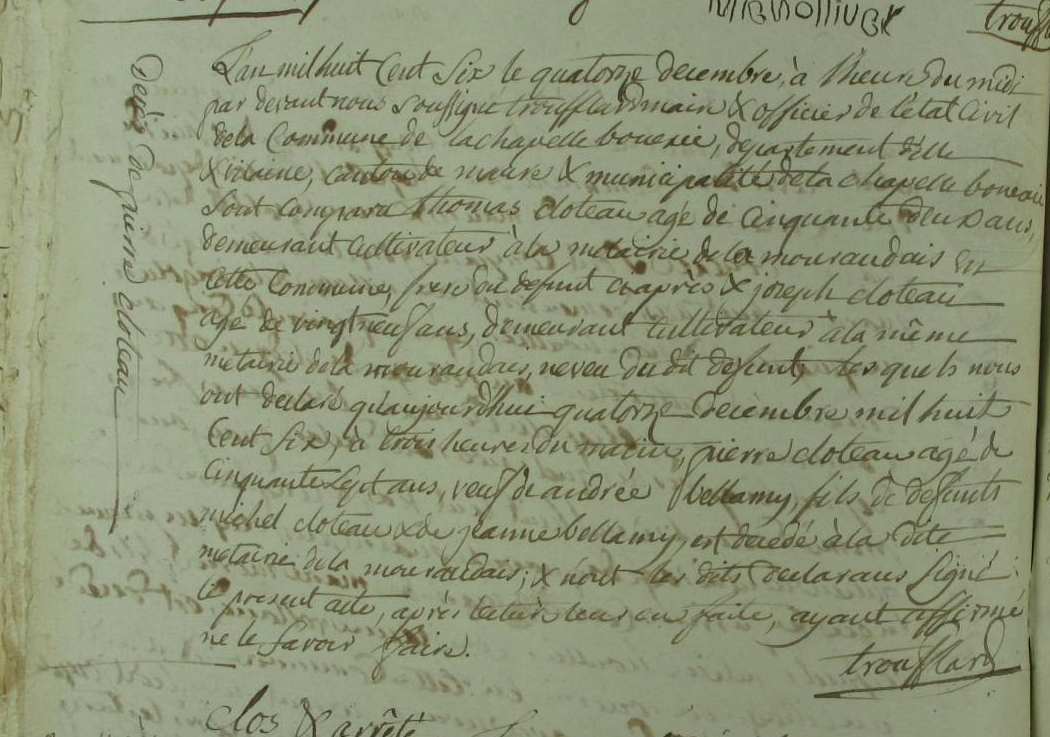 trouffl
Decès de pierre cloteau
L'an mil huit Cent Six le quatorze decembre, à l'heure du midi
par devant nous soussigné troufflard maire & officier de l'état Civil
de la Commune de la chapelle bouexic, departement d'ille
& vilaine, canton de maure & municipalité de la chapelle bouexic
Sont Comparu thomas cloteau agé de Cinquante deux ans,
demeurant cultivateur à la metairie de la mouraudais en
cette Commune, frere du defunt ci après & joseph cloteau
agé de vingt neuf ans, demeurant cultivateur à la même
metairie de la mouraudais, neveu du dit defunt, les quels nous
ont declaré qu'aujourdhui quatorze decembre mil huit
Cent Six, à trois heures du matin, pierre cloteau agé de
Cinquante Sept ans, veuf de andrée bellamy, fils de defunts
michel cloteau & de jeanne bellamy, est decedé à la dite
metairie de la mouraudais; & n'ont les dits declarans Signé
le present acte, après lecture leur en faite, ayant affirmé
ne le Savoir faire.
troufflard
clos & arrêté